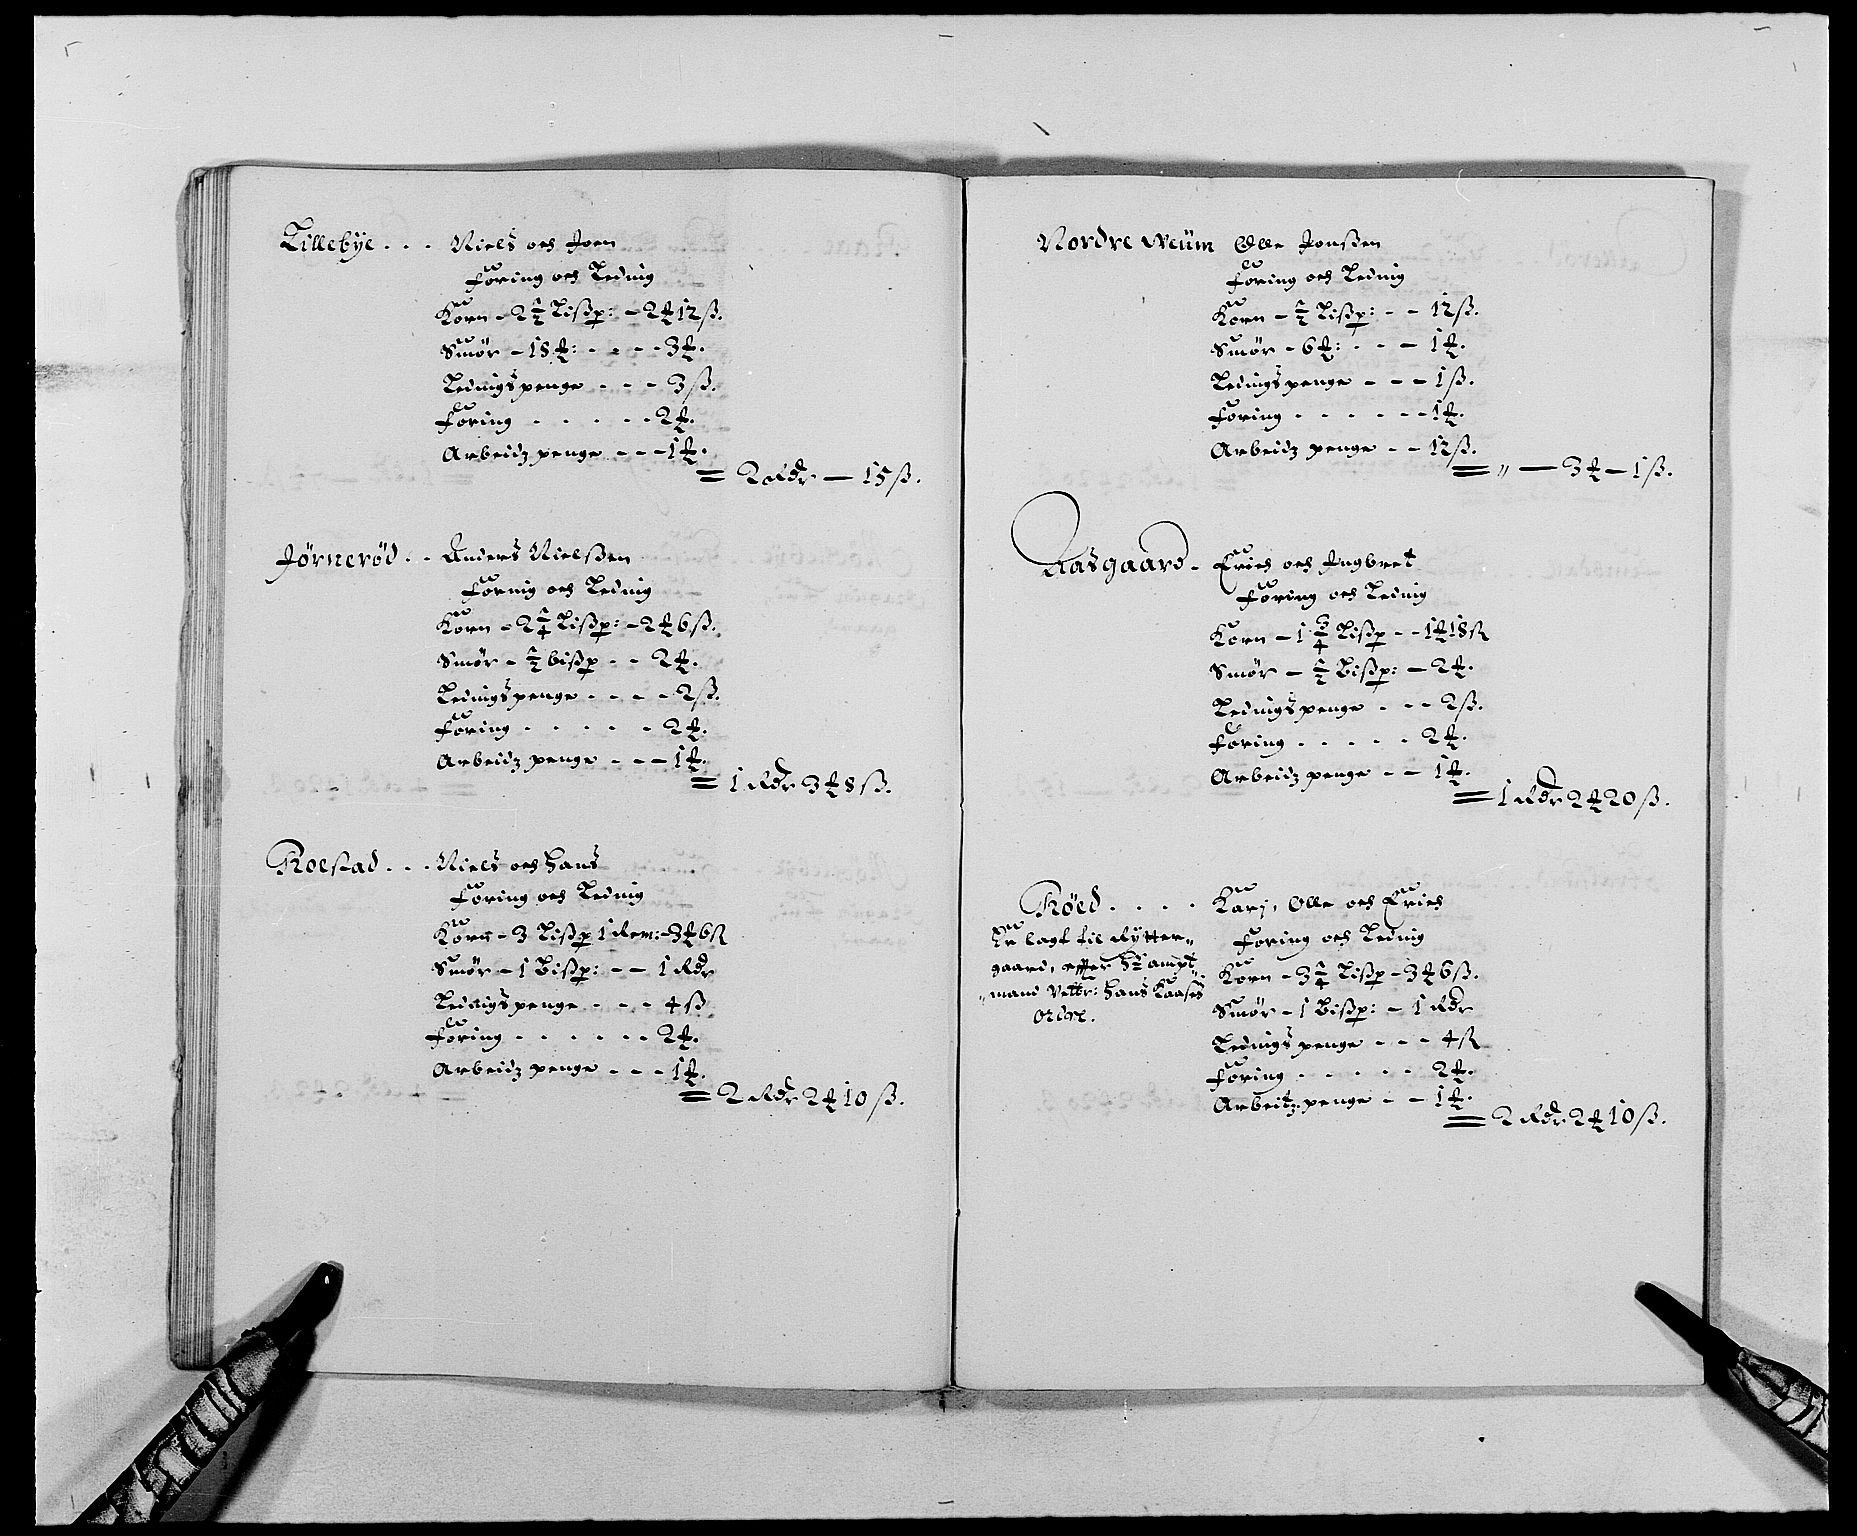 Lillebÿe . . . Niels och Joen
Foring och Leding
Korn - 2 ½ Lißp: - 2 ℔ 12 ß.
Smør - 18 ℔: - - - - 3 ℔.
Ledingspenge - - - 3 ß.
Foring . . . . . 2 ℔.
Arbeidz penge - - - 1 ℔.
= 2 Rdr — 15 ß.
Jørnerød . . Anders Nielßen
Foring och Leding
Korn - 2 ¼ Lißp: - 2 ℔ 6 ß.
Smør - ½ bißp - - 2 ℔.
Ledingspenge - - - - 2 ß.
Foring . . . . . 2 ℔.
Arbeidz penge - - - 1 ℔.
= 1 Rdr 3 ℔ 8 ß.
Roestad . . . Niels och Hans
Foring och Leding
Korn - 3 Lißp 1 Rem: - 3 ℔ 6 ß
Smør - 1 Bißp: - - 1 Rdr
Ledingspenge - - - 4 ß
Foring . . . . . . 2 ℔.
Arbeidz penge - - - 1 ℔.
= 2 Rdr 2 ℔ 10 ß.
Nordre Weüm Olle Jonßen
Foring och Leding
Korn - ½ Lißp: - - 12 ß.
Smør - 6 ℔: - - - 1 ℔.
Ledingspenge - - - 1 ß.
Foring . . . . . . 1 ℔.
Arbeidz penge - - 12 ß.
= „ — 3 ℔ - 1 ß.
Aasgaard - Erich och Ingbret
Foring och Leding
Korn - 1 ¾ Lißp - - 1 ℔ 18 ß
Smør - ½ Bißp: - 2 ℔.
Ledingspenge - - - 2 ß.
Foring . . . . . 2 ℔.
Arbeidz penge - - 1 ℔.
= 1 Rdr 2 ℔ 20 ß.
Røed . . . . Karj, Olle och Erich
Er lagt til Rÿtter„
gaard, effter Hr ampt
„mand Hans Kaases
ordre.
Foring och Leding
Korn - 3 ¼ Lißp - 3 ℔ 6 ß.
Smør - 1 Bißp: - 1 Rdr
Ledings penge - - - 4 ß
Foring . . . . . 2 ℔.
Arbeitz penge - - 1 ℔.
= 2 Rdr 2 ℔ 10 ß.